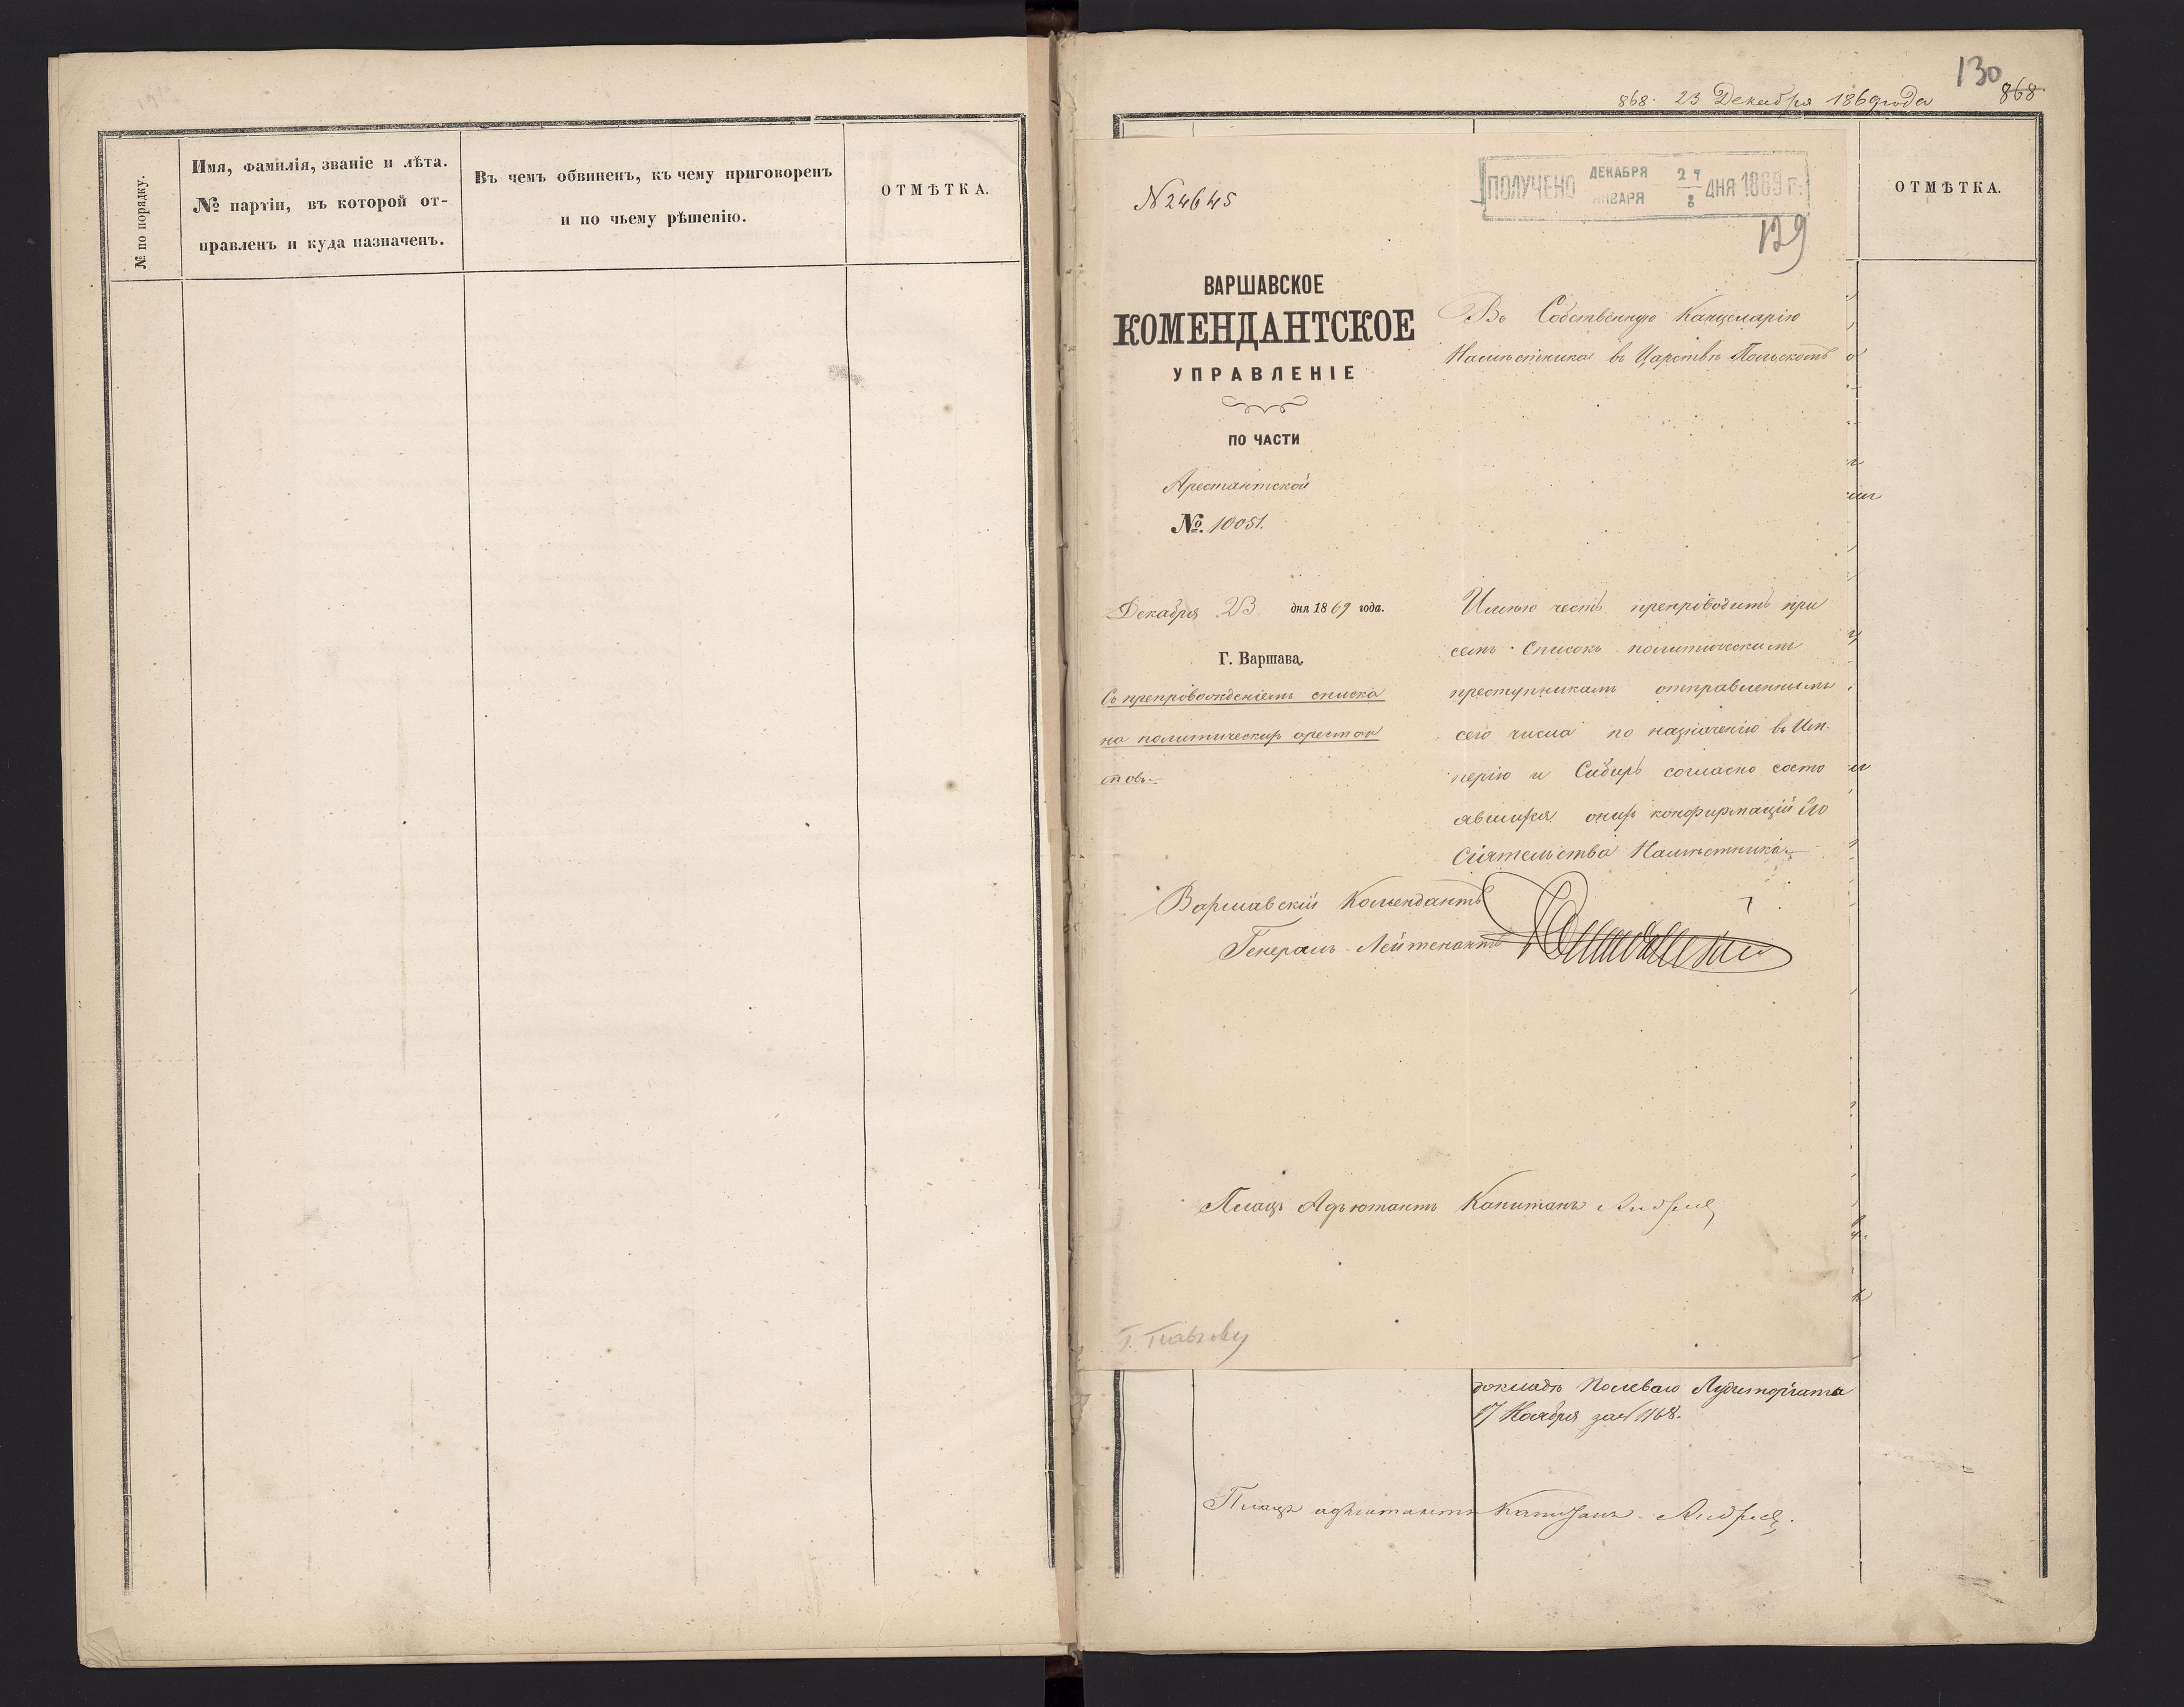 № по порядку.
Имя, фамилія, званіе и лѣта.
№ партіи, въ которой от-
правленъ и куда назначенъ.
Въ чемъ обвиненъ, къ чему приговоренъ
и по чьему рѣшенію.
ОТМѢТКА.
130
868. 23 Декабря 1869 года
868
ОТМѢТКА.
N 24645
ПОЛУЧЕНО ДЕКАБРЯ 27 ДНЯ 1869 г.
ЯНВАРЯ 8
129
ВАРШАВСКОЕ
КОМЕНДАНТСКОЕ
УПРАВЛЕНІЕ
ПО ЧАСТИ
Арестантской
№. 10051.
Декабря 23 дня 1869 года.
Г. Варшава.
Съ препровожденіемъ списка
на политическихъ арестан
товъ.
Въ Собственную Канцелярію
Намѣстника въ Царствѣ Польскомъ
Имѣю честь препроводить при
семъ списокъ политическимъ
преступникамъ отправленнымъ
сего числа по назначенію въ Им-
перію и Сибирь согласно состо
явшихся о нихъ конфирмацій Его
Сіятельства Намѣстника.
Варшавскій Комендантъ
Генералъ-Лейтенантъ
Плацъ Адъютантъ Капитанъ
Г.
докладъ Полеваго Аудиторіата
17 Ноября за N 1168.
Плацъ адъютантъ Капитанъ